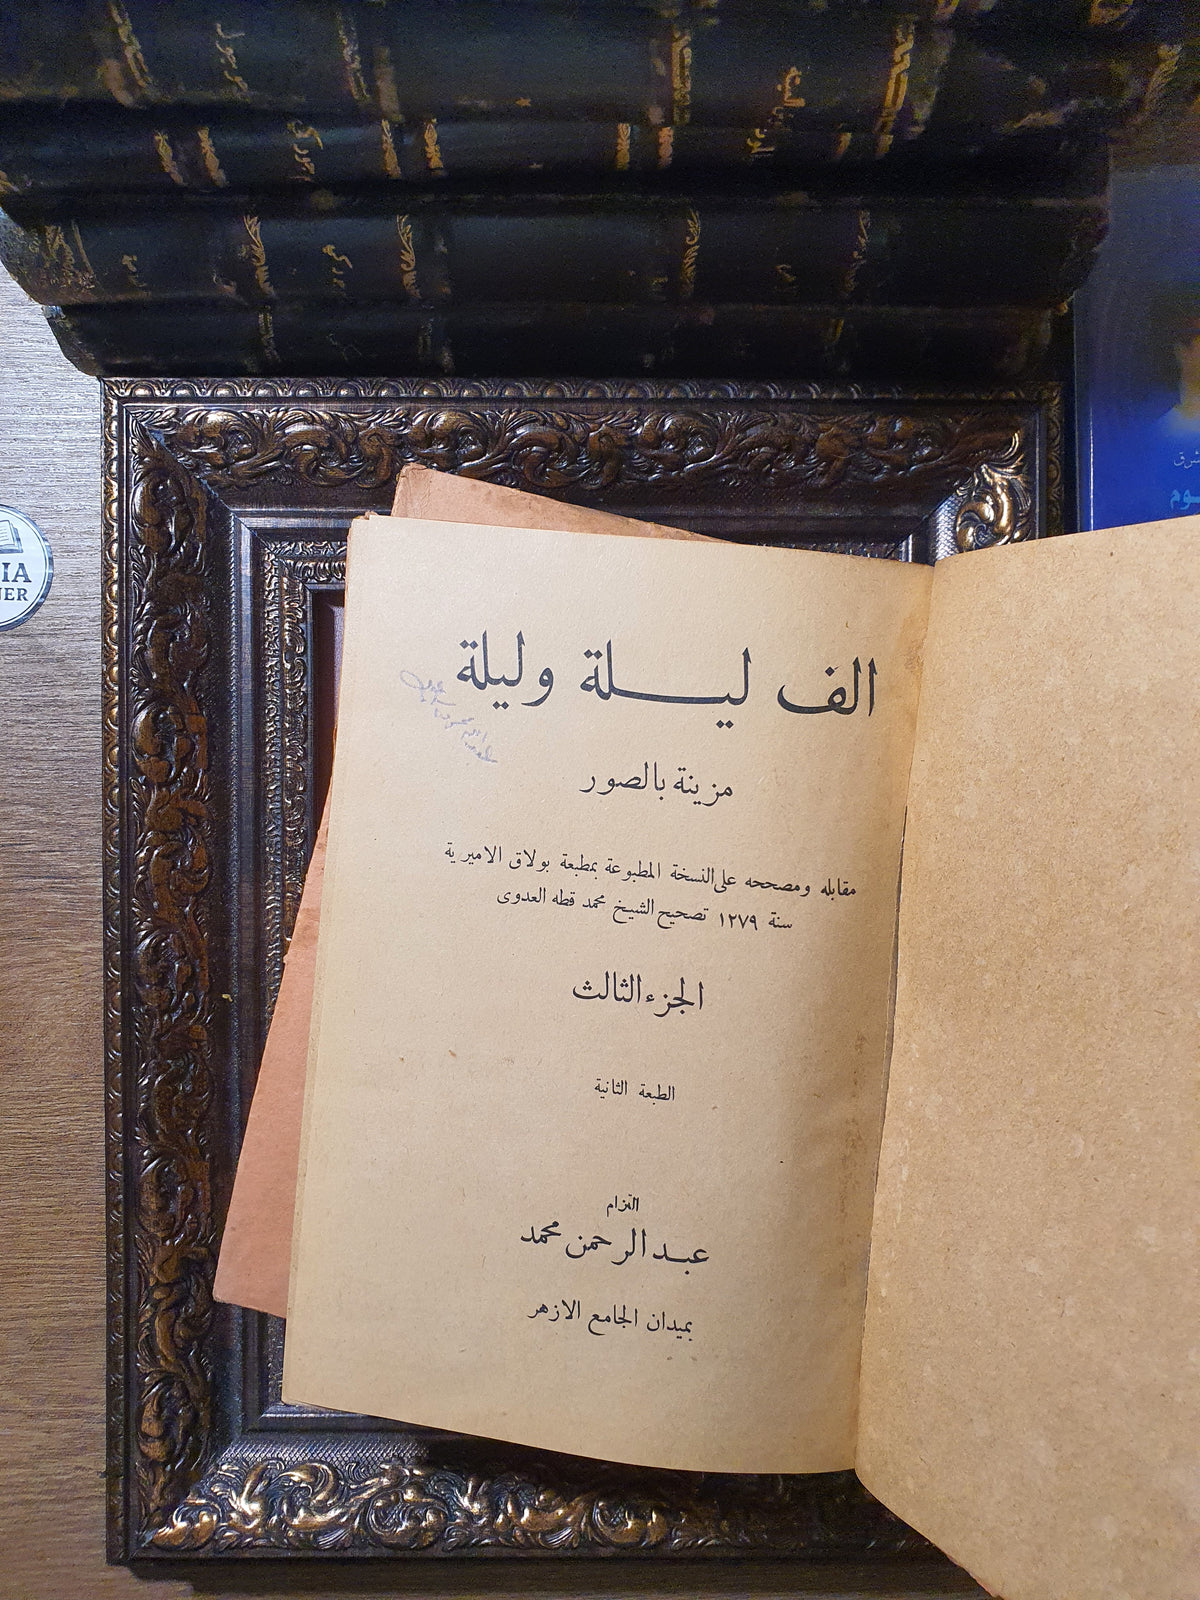 الف ليلة وليلة
مزينة بالصور
مقابله ومصححه على النسخة المطبوعة بمطبعة بولاق الاميرية
سنة ١٢٧٩ تصحيح الشيخ محمد قطه العدوى
الجزء الثالث
الطبعة الثانية
التزام
عبد الرحمن محمد
بميدان الجامع الازهر